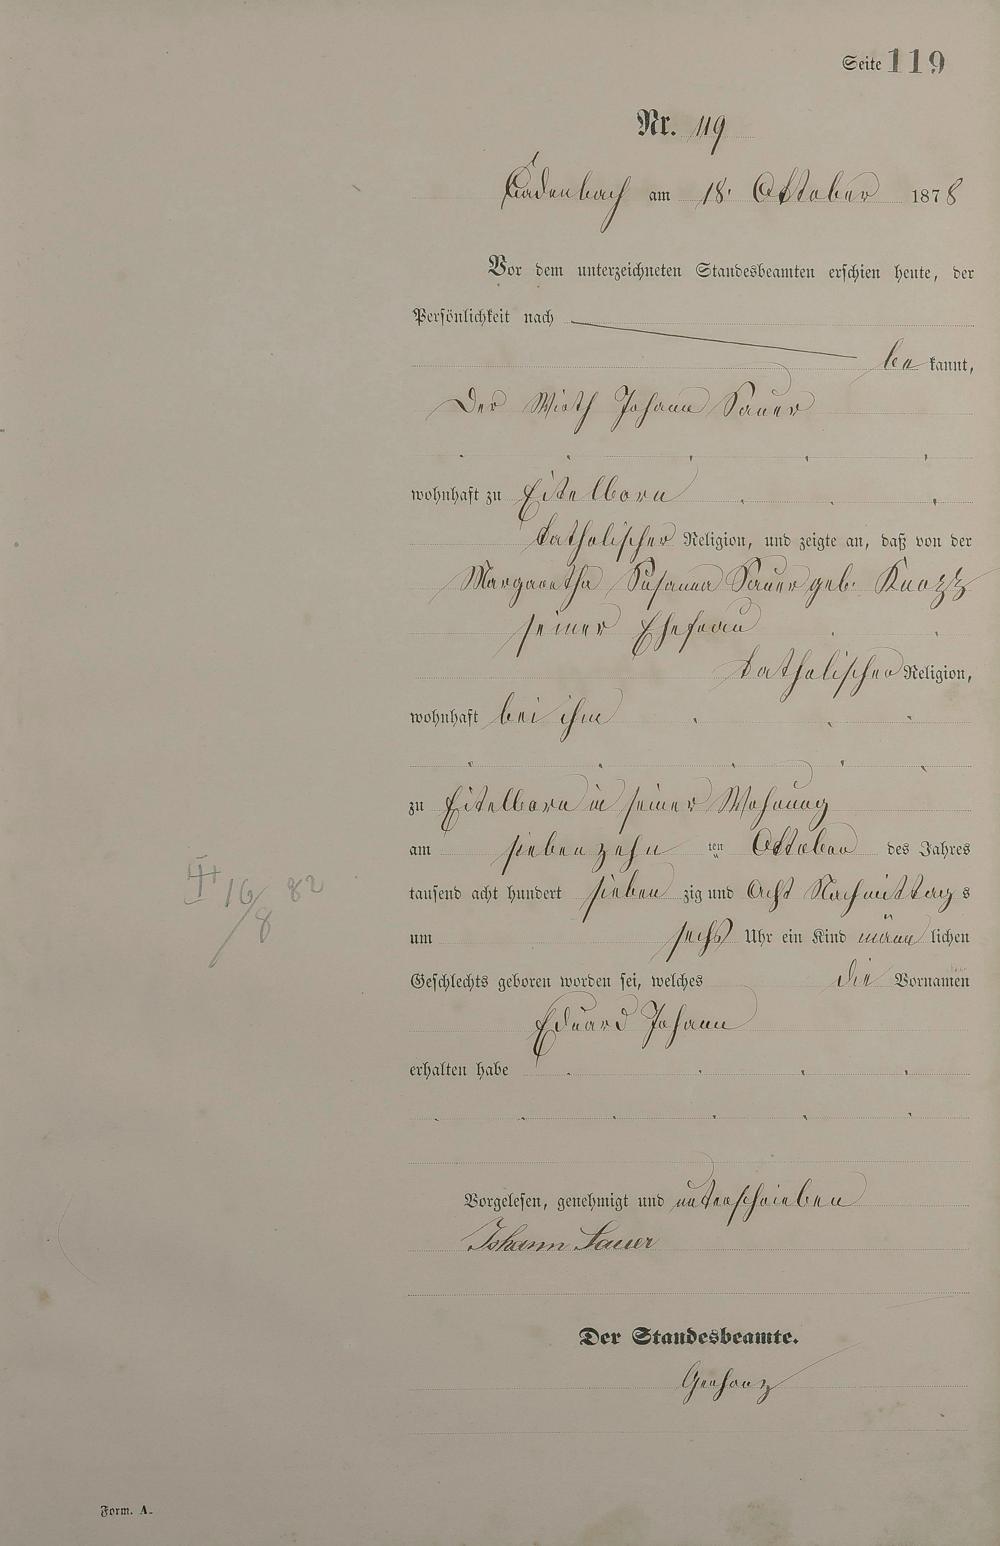 Seite 119
Nr. 119
Cadenbach am 18. Oktober 1878
Vor dem unterzeichneten Standesbeamten erschien heute, der
Persönlichkeit nach
be kannt,
Der Wirth Johann Sauer
wohnhaft zu Eitelborn
katholischer Religion, und zeigte an, daß von der
Margaretha Susanna Sauer geb. Knozz
seiner Ehefrau
katholischer Religion,
wohnhaft bei ihm
zu Eitelborn in seiner Wohnung
am siebenzehn ten Oktober des Jahres
tausend acht hundert sieben zig und Acht Nachmittag s
um sechs Uhr ein Kind männ lichen
Geschlechts geboren worden sei, welches die Vornamen
Eduard Johann
erhalten habe
16/8 82
Vorgelesen, genehmigt und unterschrieben
Johann Sauer
Der Standesbeamte.
Gerharz
Form. A.